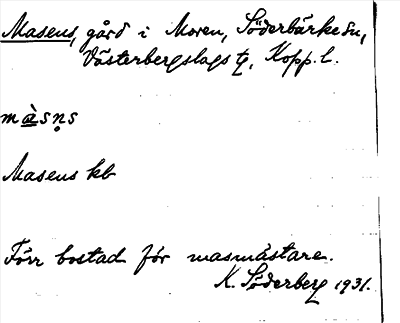 Masens, gård i Moren, Söderbärke sn,
Västerbergslags tg, Kopp. l.
màsņs
Masens kb
Förr bostad för masmästare.
K. Söderberg 1931.